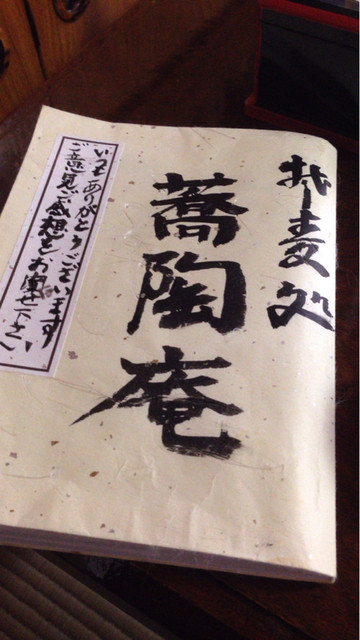 麦処
蕎陶庵
いつもありがとうございます
ご意見ご感想をお聞せ下さい